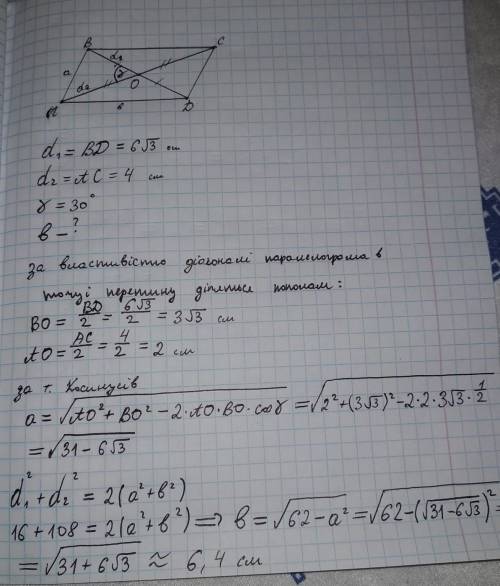 B C
d₁
a γ
d₂ O
A в D
d₁ = BD = 6√3 см
d₂ = AC = 4 см
γ = 30°
в – ?
за властивістю діагоналі паралелограма в
точці перетину діляться пополам:
BO = BD/2 = 6√3/2 = 3√3 см
AO = AC/2 = 4/2 = 2 см
за т. Косинусів
a = √(AO² + BO² – 2·AO·BO·cosγ) = √(2² + (3√3)² – 2·2·3√3·1/2)
= √(31 – 6√3)
d₁² + d₂² = 2(a² + в²)
16 + 108 = 2(a² + в²) ⇒ в = √(62 – a²) = √(62 – (√(31 – 6√3))²) =
= √(31 + 6√3) ≈ 6,4 см